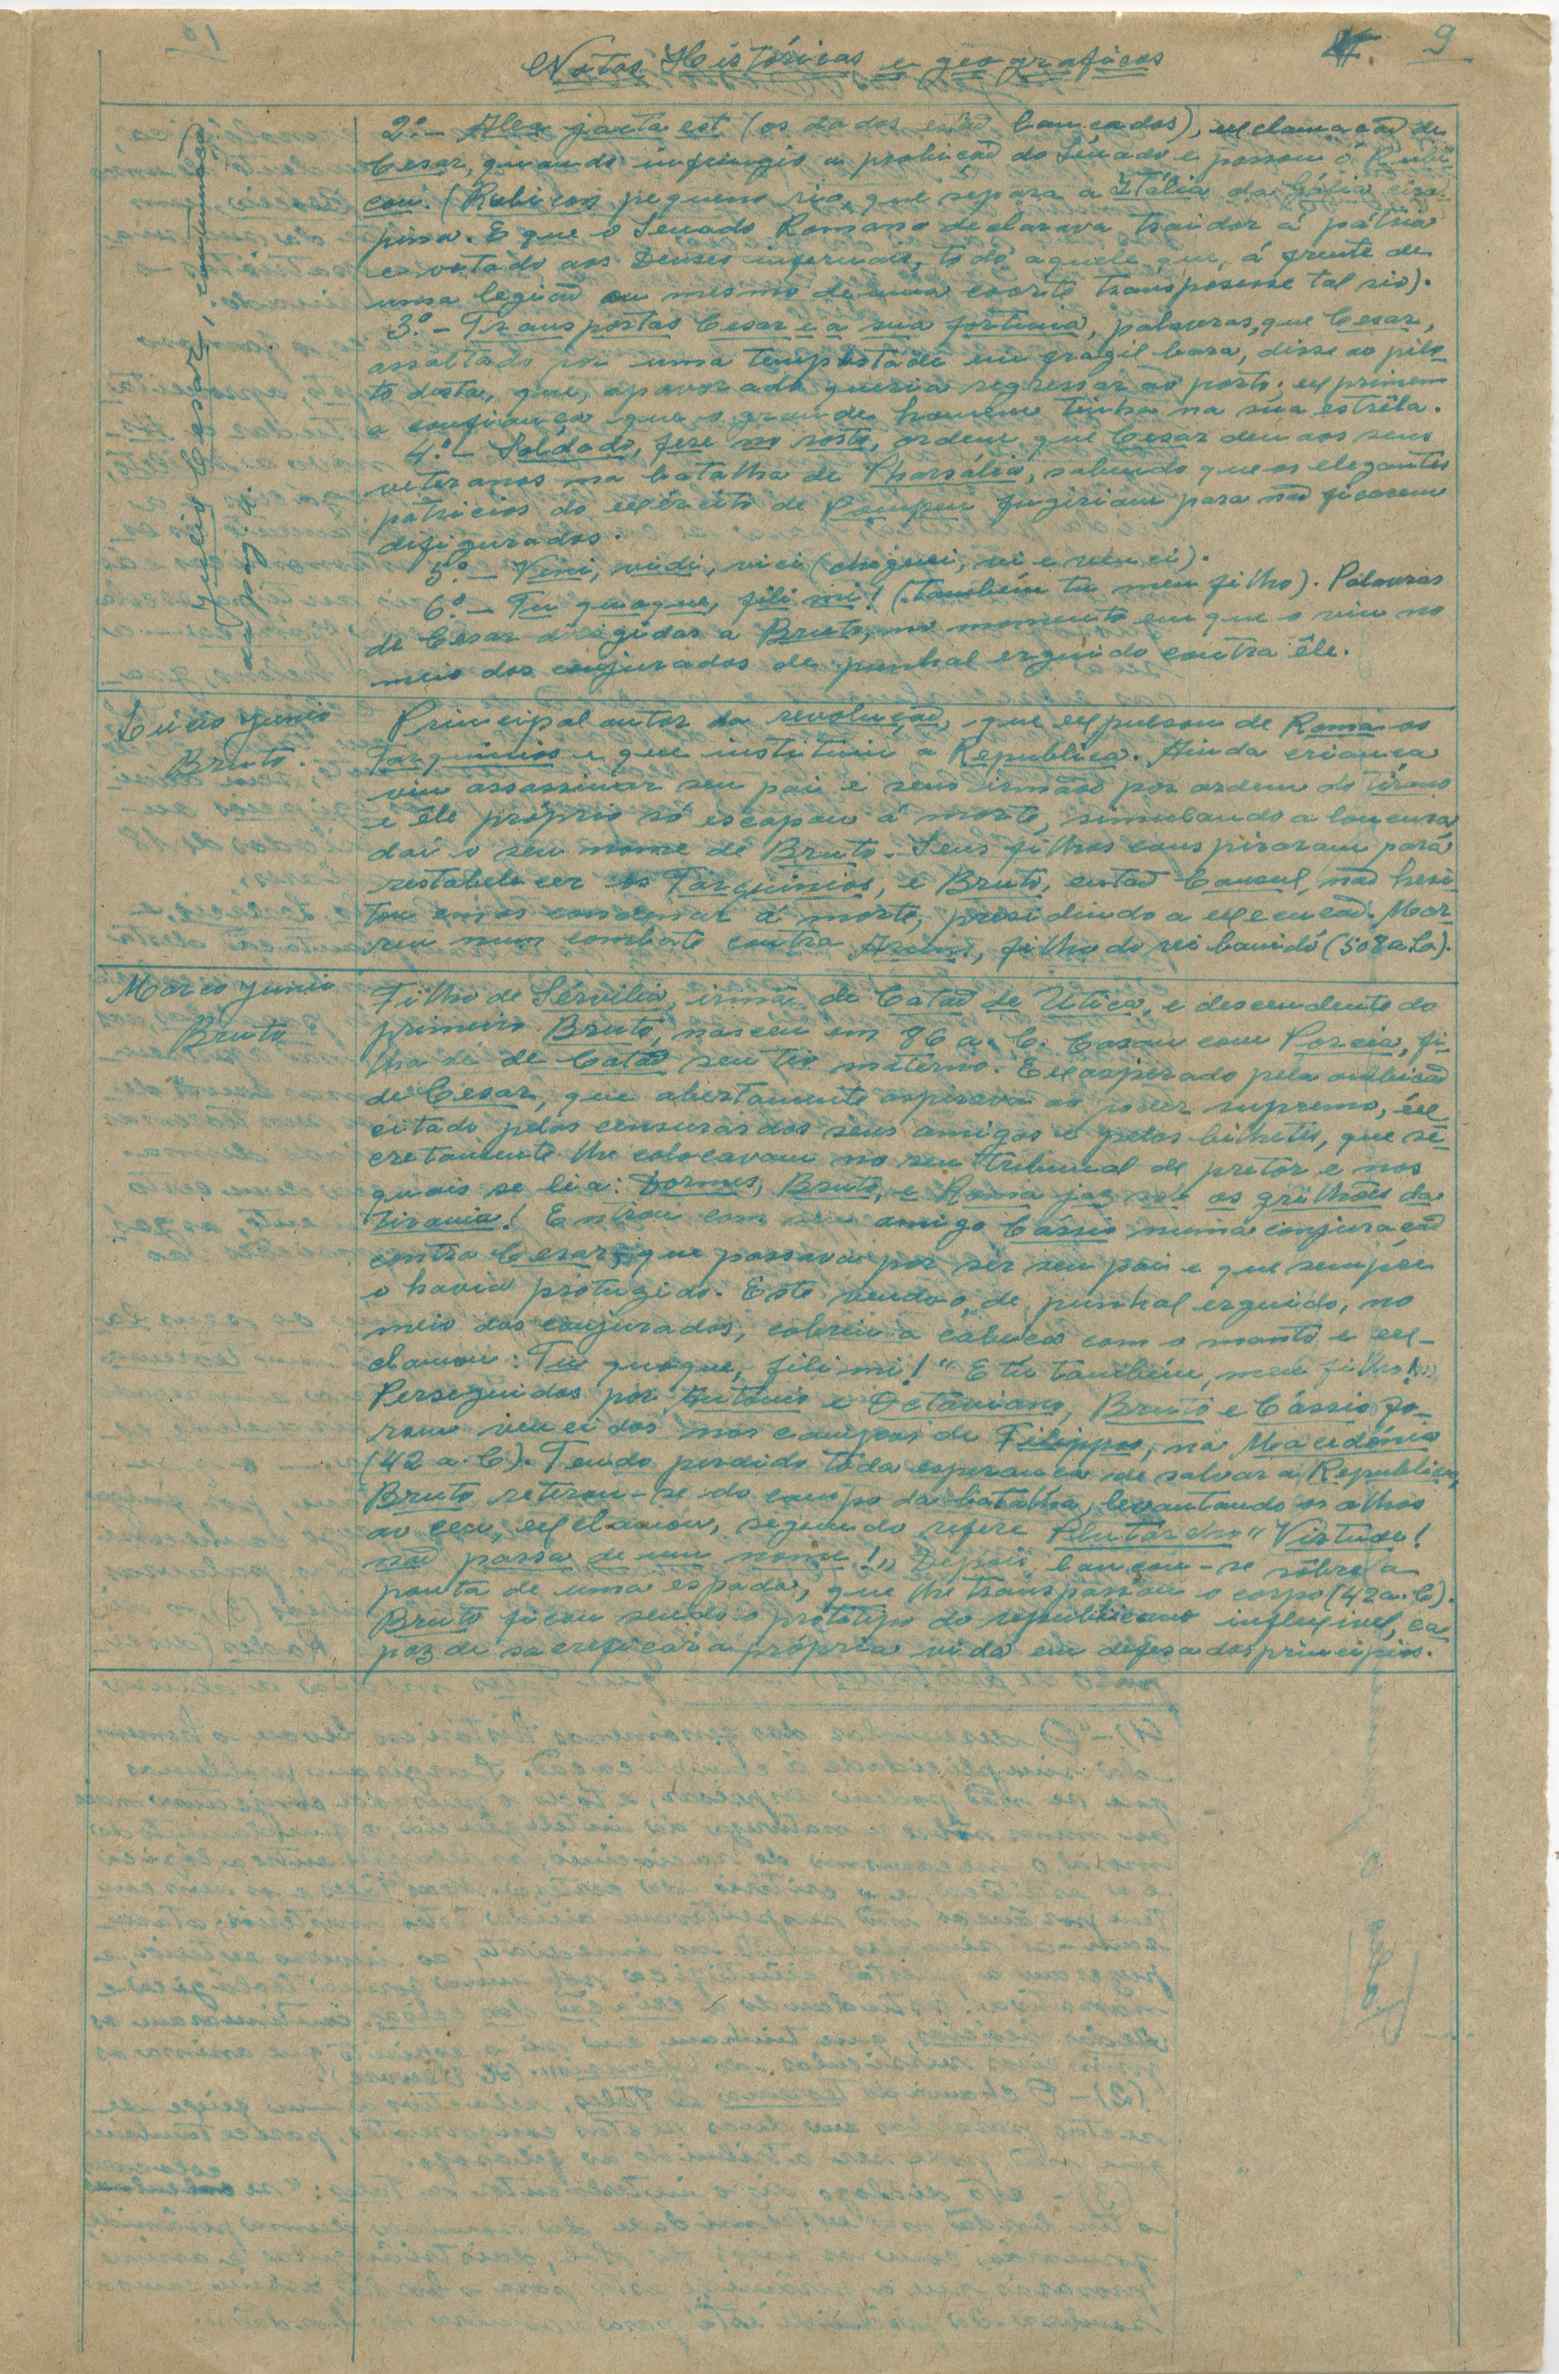 Notas Históricas e geograficas
9
Caio Julio Cesar, continuação
2.º - Alea jacta est (os dados estão lançados), exclamação de
Cesar, quando infringio a proibição do Senado e passou o Rubi-
con. (Rubicon pequeno rio, que separa a Itália da Gália cisal-
pina. E que o Senado Romano declarava traidor á pátria
e votado aos Deuses infernais, todo aquele que, á frente de
uma legião ou mesmo de uma coorte transposesse tal rio).
3.º - Transportas Cesar e a sua fortuna, palavras, que Cesar,
assaltado por uma tempestade em fragil barca, disse ao pilo-
to desta, que, apavorado queria regressar ao porto; exprimem
a confiança que o grande homem tinha na sua estrêla.
4.º - Soldado, fere no rosto, ordem que Cesar deu aos seus
veteranos na batalha de Pharsália, sabendo que os elegantes
patricios do exército de Pompeu fugiriam para não ficarem
difigurados.
5.º - Veni, vidi, vici (cheguei, vi e venci).
6.º - Tu quoque, fili mi! (tambêm tu meu filho). Palavras
de Cesar dirigidas a Bruto, no momento em que o viu no
meio dos conjurados de punhal erguido contra êle.
Lúcio Junio
Bruto.
Principal autor da revolução, que expulsou de Roma os
Tarquinios e que instituiu a Republica. Ainda criança
viu assassinar seu pai e seus irmãos por ordem do tirano
e êle próprio só escapou á morte, simulando a loucura
daí o seu nome de Bruto. Seus filhos conspiraram para
restabelecer os Tarquinios, e Bruto, então Consul, não hesi-
tou em os condenar á morte, presidindo a execução. Mor-
reu num combate contra Aruns, filho do rei banido (508 a. C.).
Marco Junio
Bruto
Filho de Servilia, irmã de Catão de Utica, e descendente do
primeiro Bruto, nasceu em 86 a. C. Casou com Porcia, fi-
lha de de Catão seu tio materno. Exasperado pela ambição
de Cesar, que abertamente aspirava ao poder supremo, ex-
citado pelas censuras dos seus amigos e pelos bilhetes, que se-
cretamente lhe colocavam no seu tribunal de pretor e nos
quais se lia: Dormes, Bruto, e Roma jaz sob os grilhões da
Tirania! Entrou com seu amigo Cássio numa conjuração
contra Cesar, que passava por ser seu pai e que sempre
o havia protegido. Este vendo-o, de punhal erguido, no
meio dos conjurados, cobriu a cabeça com o manto e ex-
clamou: Tu quoque, fili mi! "E tu tambêm, meu filho!"
Perseguidos por António e Octaviano, Bruto e Cássio fo-
ram vencidos nos campos de Filippos, na Macedónia
(42 a. C). Tendo perdido toda esperança de salvar a Republica,
Bruto retirou-se do campo da batalha, levantando os olhos
ao ceu, exclamou, segundo refere Plutarcho "Virtude!
não passa de um nome!" Depois lançou-se sôbre a
ponta de uma espada, que lhe transpassou o corpo (42 a. C).
Bruto ficou sendo o prototipo do republicano inflexivel, ca-
paz de sacrificar a própria vida em defesa dos principios.